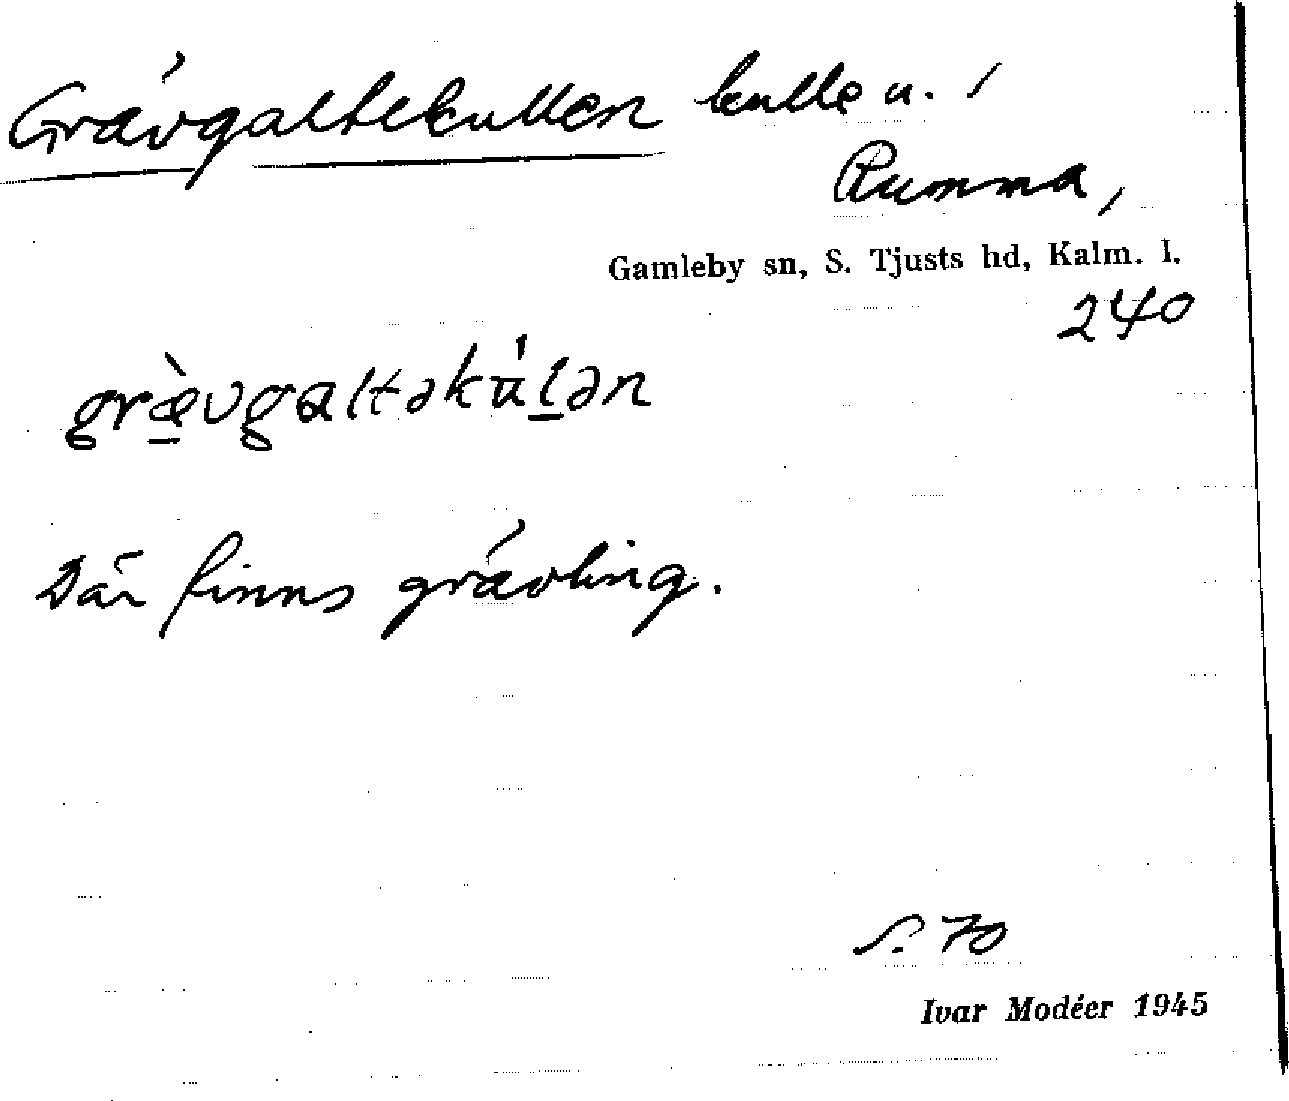 Grävgaltekullen kulle n. i
Rumma,
Gamleby sn, S. Tjusts hd, Kalm. l.
240
græ̀vgaltəkúlən
Där finns grävling.
S. 70
Ivar Modéer 1945